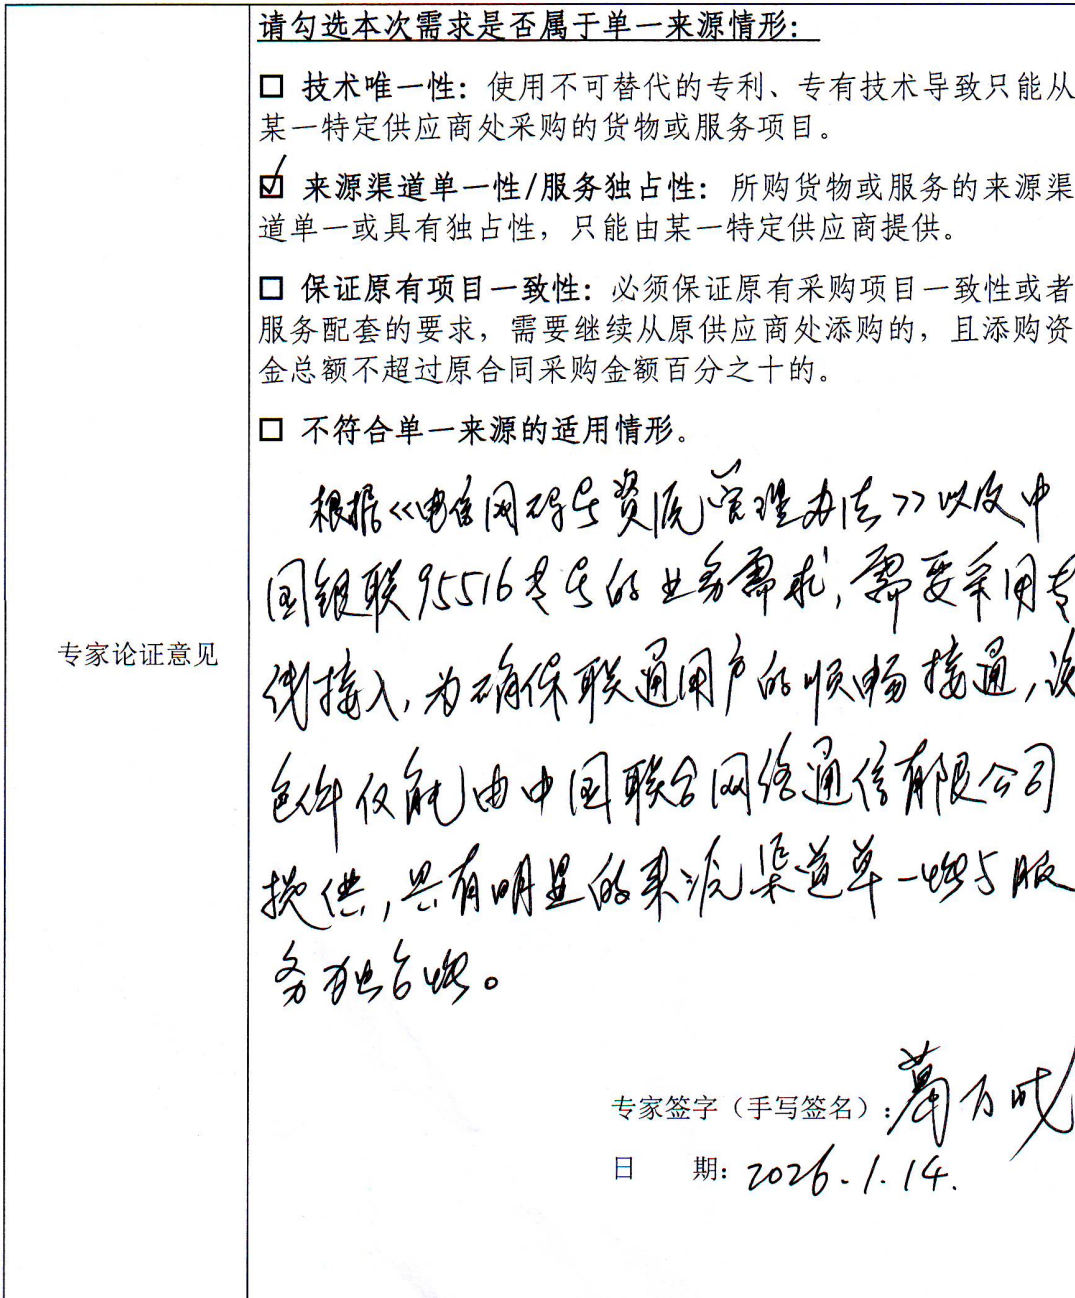 请勾选本次需求是否属于单一来源情形：
☐ 技术唯一性：使用不可替代的专利、专有技术导致只能从
某一特定供应商处采购的货物或服务项目。
☑ 来源渠道单一性/服务独占性：所购货物或服务的来源渠
道单一或具有独占性，只能由某一特定供应商提供。
☐ 保证原有项目一致性：必须保证原有采购项目一致性或者
服务配套的要求，需要继续从原供应商处添购的，且添购资
金总额不超过原合同采购金额百分之十的。
☐ 不符合单一来源的适用情形。
专家论证意见
根据《电信网码号资源管理办法》以及中
国银联95516专号的业务需求，需要采用专
线接入，为确保联通用户的顺畅接通，该
仅能由中国联合网络通信有限公司
提供，具有明显的来源渠道单一性与服
务独占性。
专家签字（手写签名）：葛万成
日 期：2026.1.14.